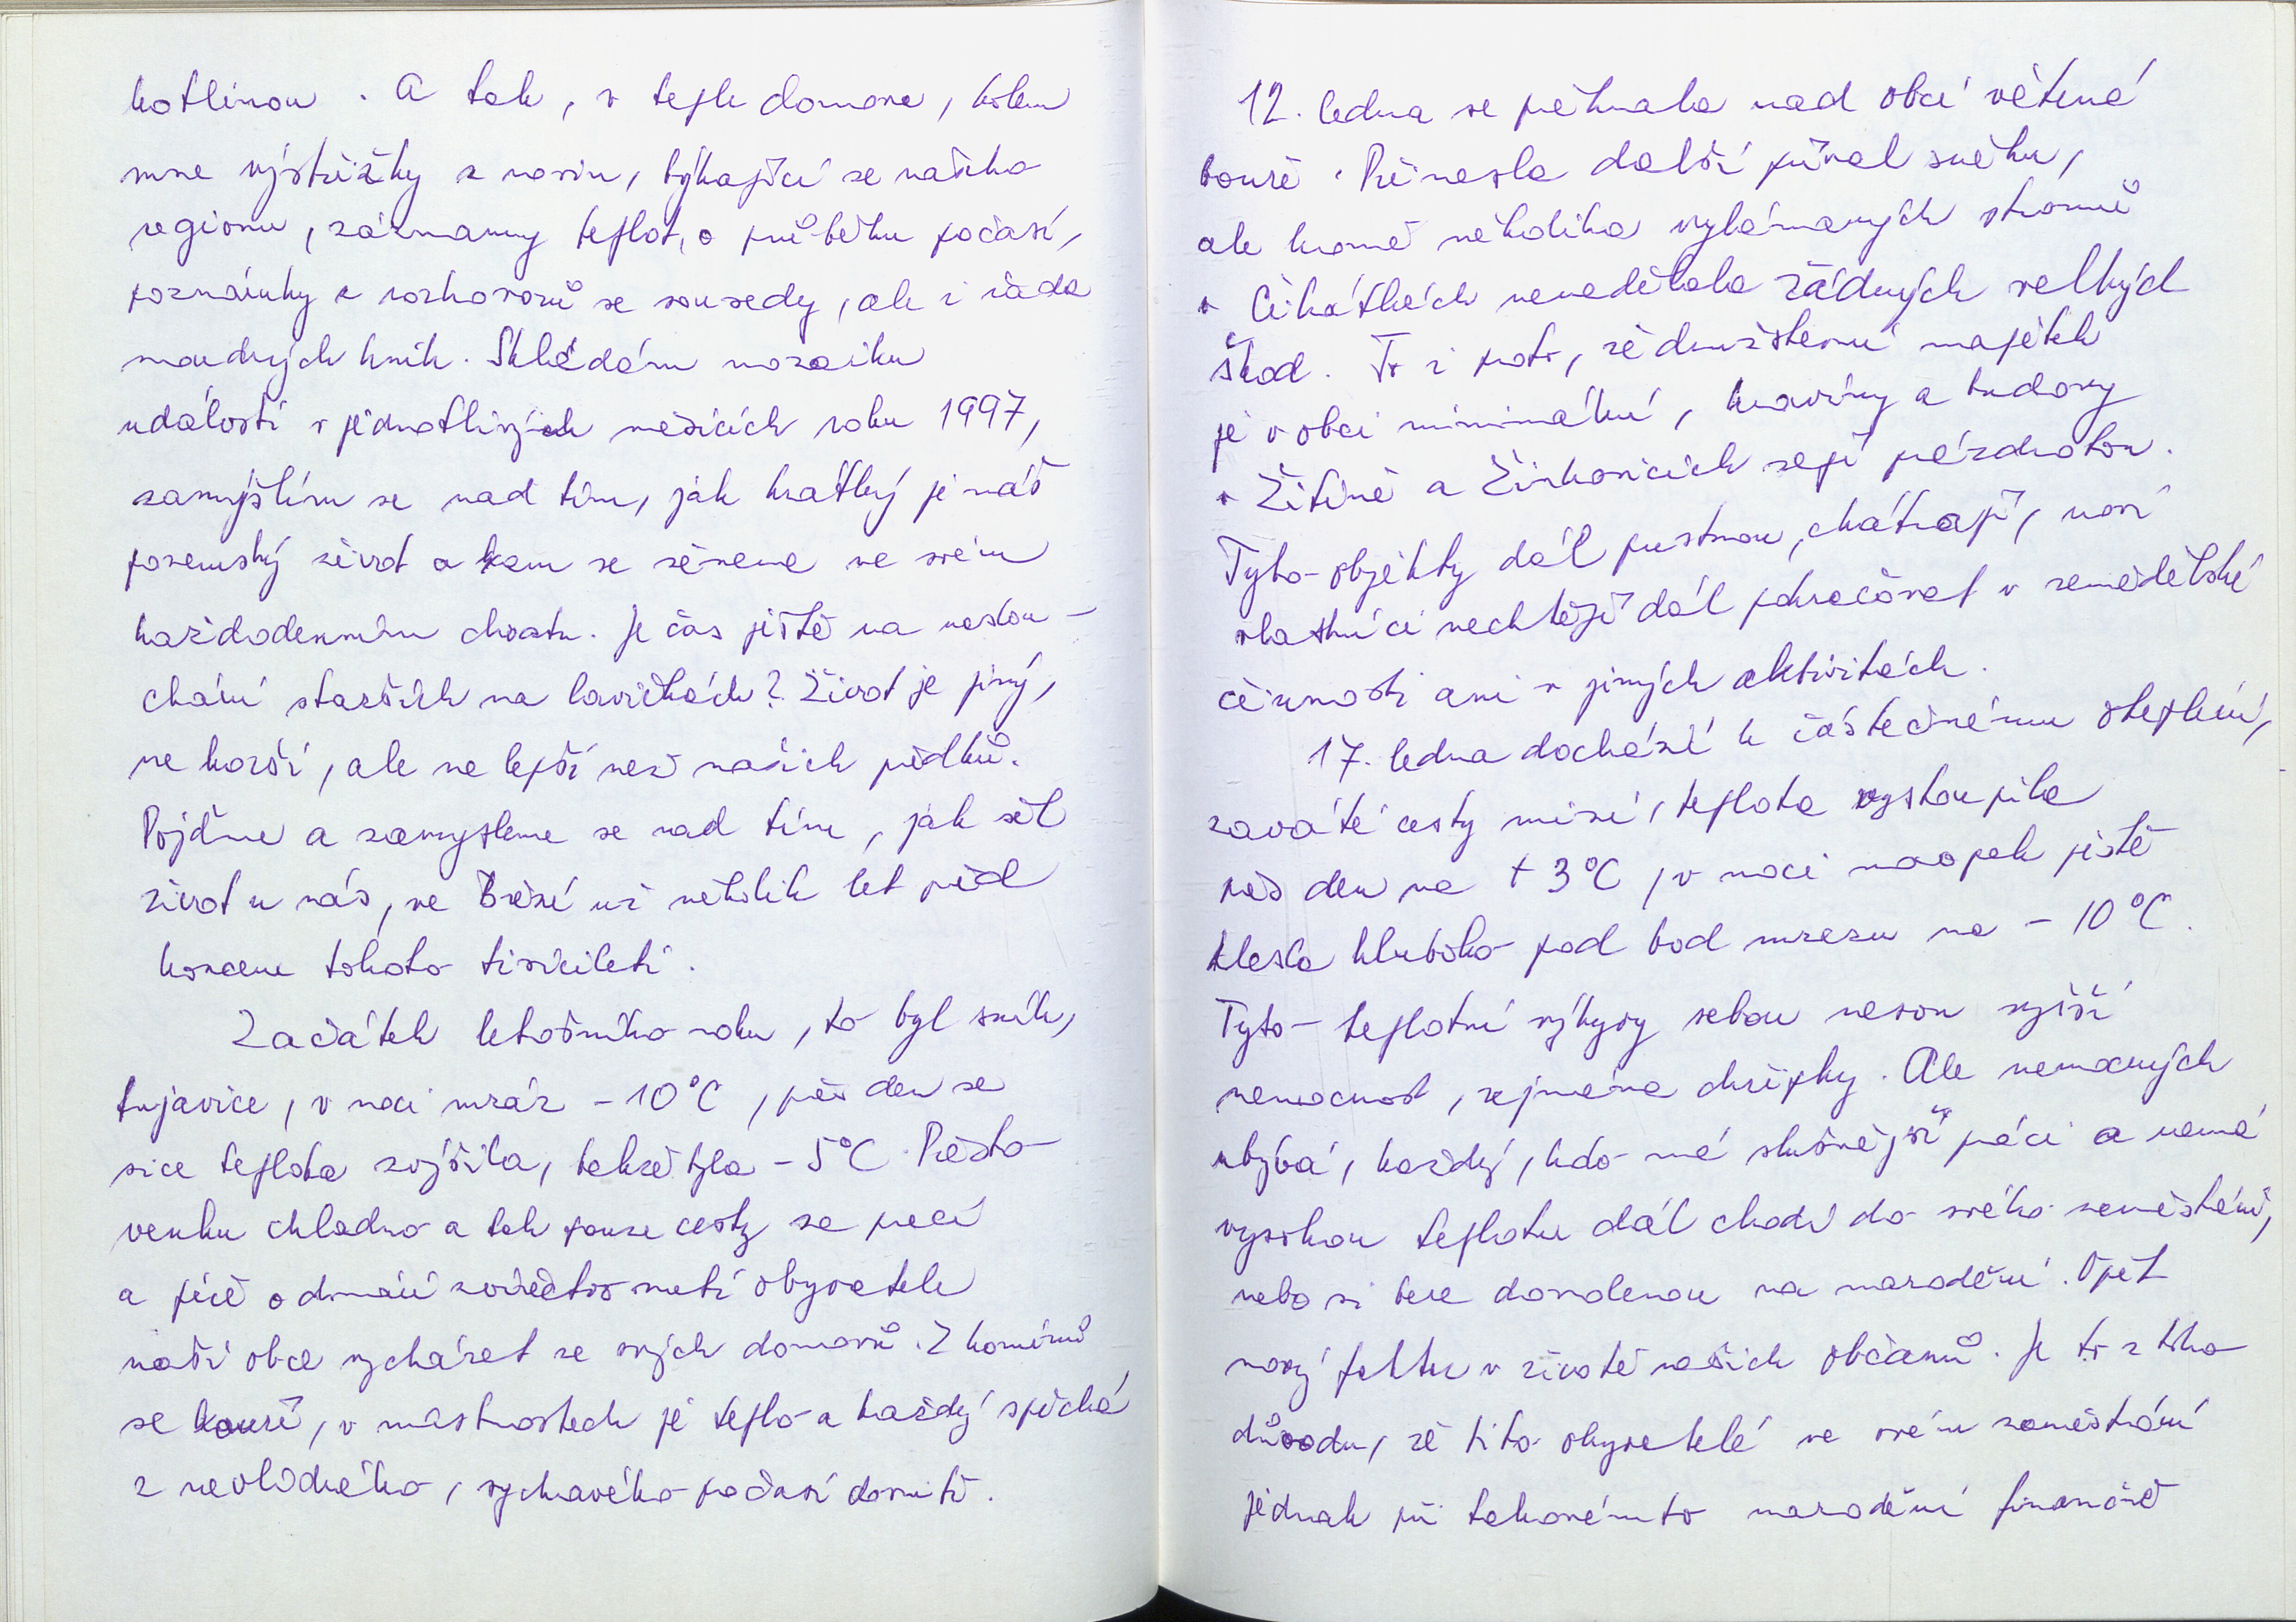 kotlinou. A tak, v teple domova, kolem
mne výstřižky z novin, týkající se našeho
regionu, záznamy teplot, o průběhu počasí,
poznámky z rozhovorů se sousedy, ale i řada
moudrých knih. Skládám mozaiku
událostí v jednotlivých měsících roku 1997,
zamýšlím se nad tím, jak krátký je náš
pozemský život a kam se ženeme ve svém
každodenním chvatu. Je čas ještě na naslou-
chání starších na lavičkách? Život je jiný,
ne horší, ale ne lepší než našich předků.
Pojďme a zamysleme se nad tím, jak šel
život u nás, ve Březí už několik let před
koncem tohoto tisíciletí.
Začátek letošního roku, to byl sníh,
fujavice, v noci mráz -10°C, přes den se
sice teplota zvýšila, takže byla -5°C. Přesto
venku chladno a tak pouze cesty za prací
a péče o domácí zvířectvo nutí obyvatele
naší obce vycházet ze svých domovů. Z komínů
se kouří, v místnostech je teplo a každý spěchá
z nevlídného, sychravého počasí domů.
12. ledna se přehnala nad obcí větrná
bouře. Přinesla další příval sněhu,
ale kromě několika vylámaných stromů
v Čihátkách nenadělala žádných velkých
škod. To i proto, že družstevní majetek
je v obci minimální, kravíny a budovy
v Žitině a Žinkovicích zejí prázdnotou.
Tyto objekty dál pustnou, chátrají, noví
vlastníci nechtějí dál pokračovat v zemědělské
činnosti ani v jiných aktivitách.
17. ledna dochází k částečnému oteplení,
zaváté cesty mizí, teplota vystoupila
přes den na +3°C, v noci naopak ještě
klesla hluboko pod bod mrazu na -10°C.
Tyto teplotní výkyvy sebou nesou vyšší
nemocnost, zejména chřipky. Ale nemocných
ubývá, každý, kdo má slušnější práci a nemá
vysokou teplotu dál chodí do svého zaměstnání,
nebo si bere dovolenou na marodění. Opět
nový faktor v životě našich občanů. Je to z toho
důvodu, že tito obyvatelé ve svém zaměstnání
jednak při takovémto marodění finančně